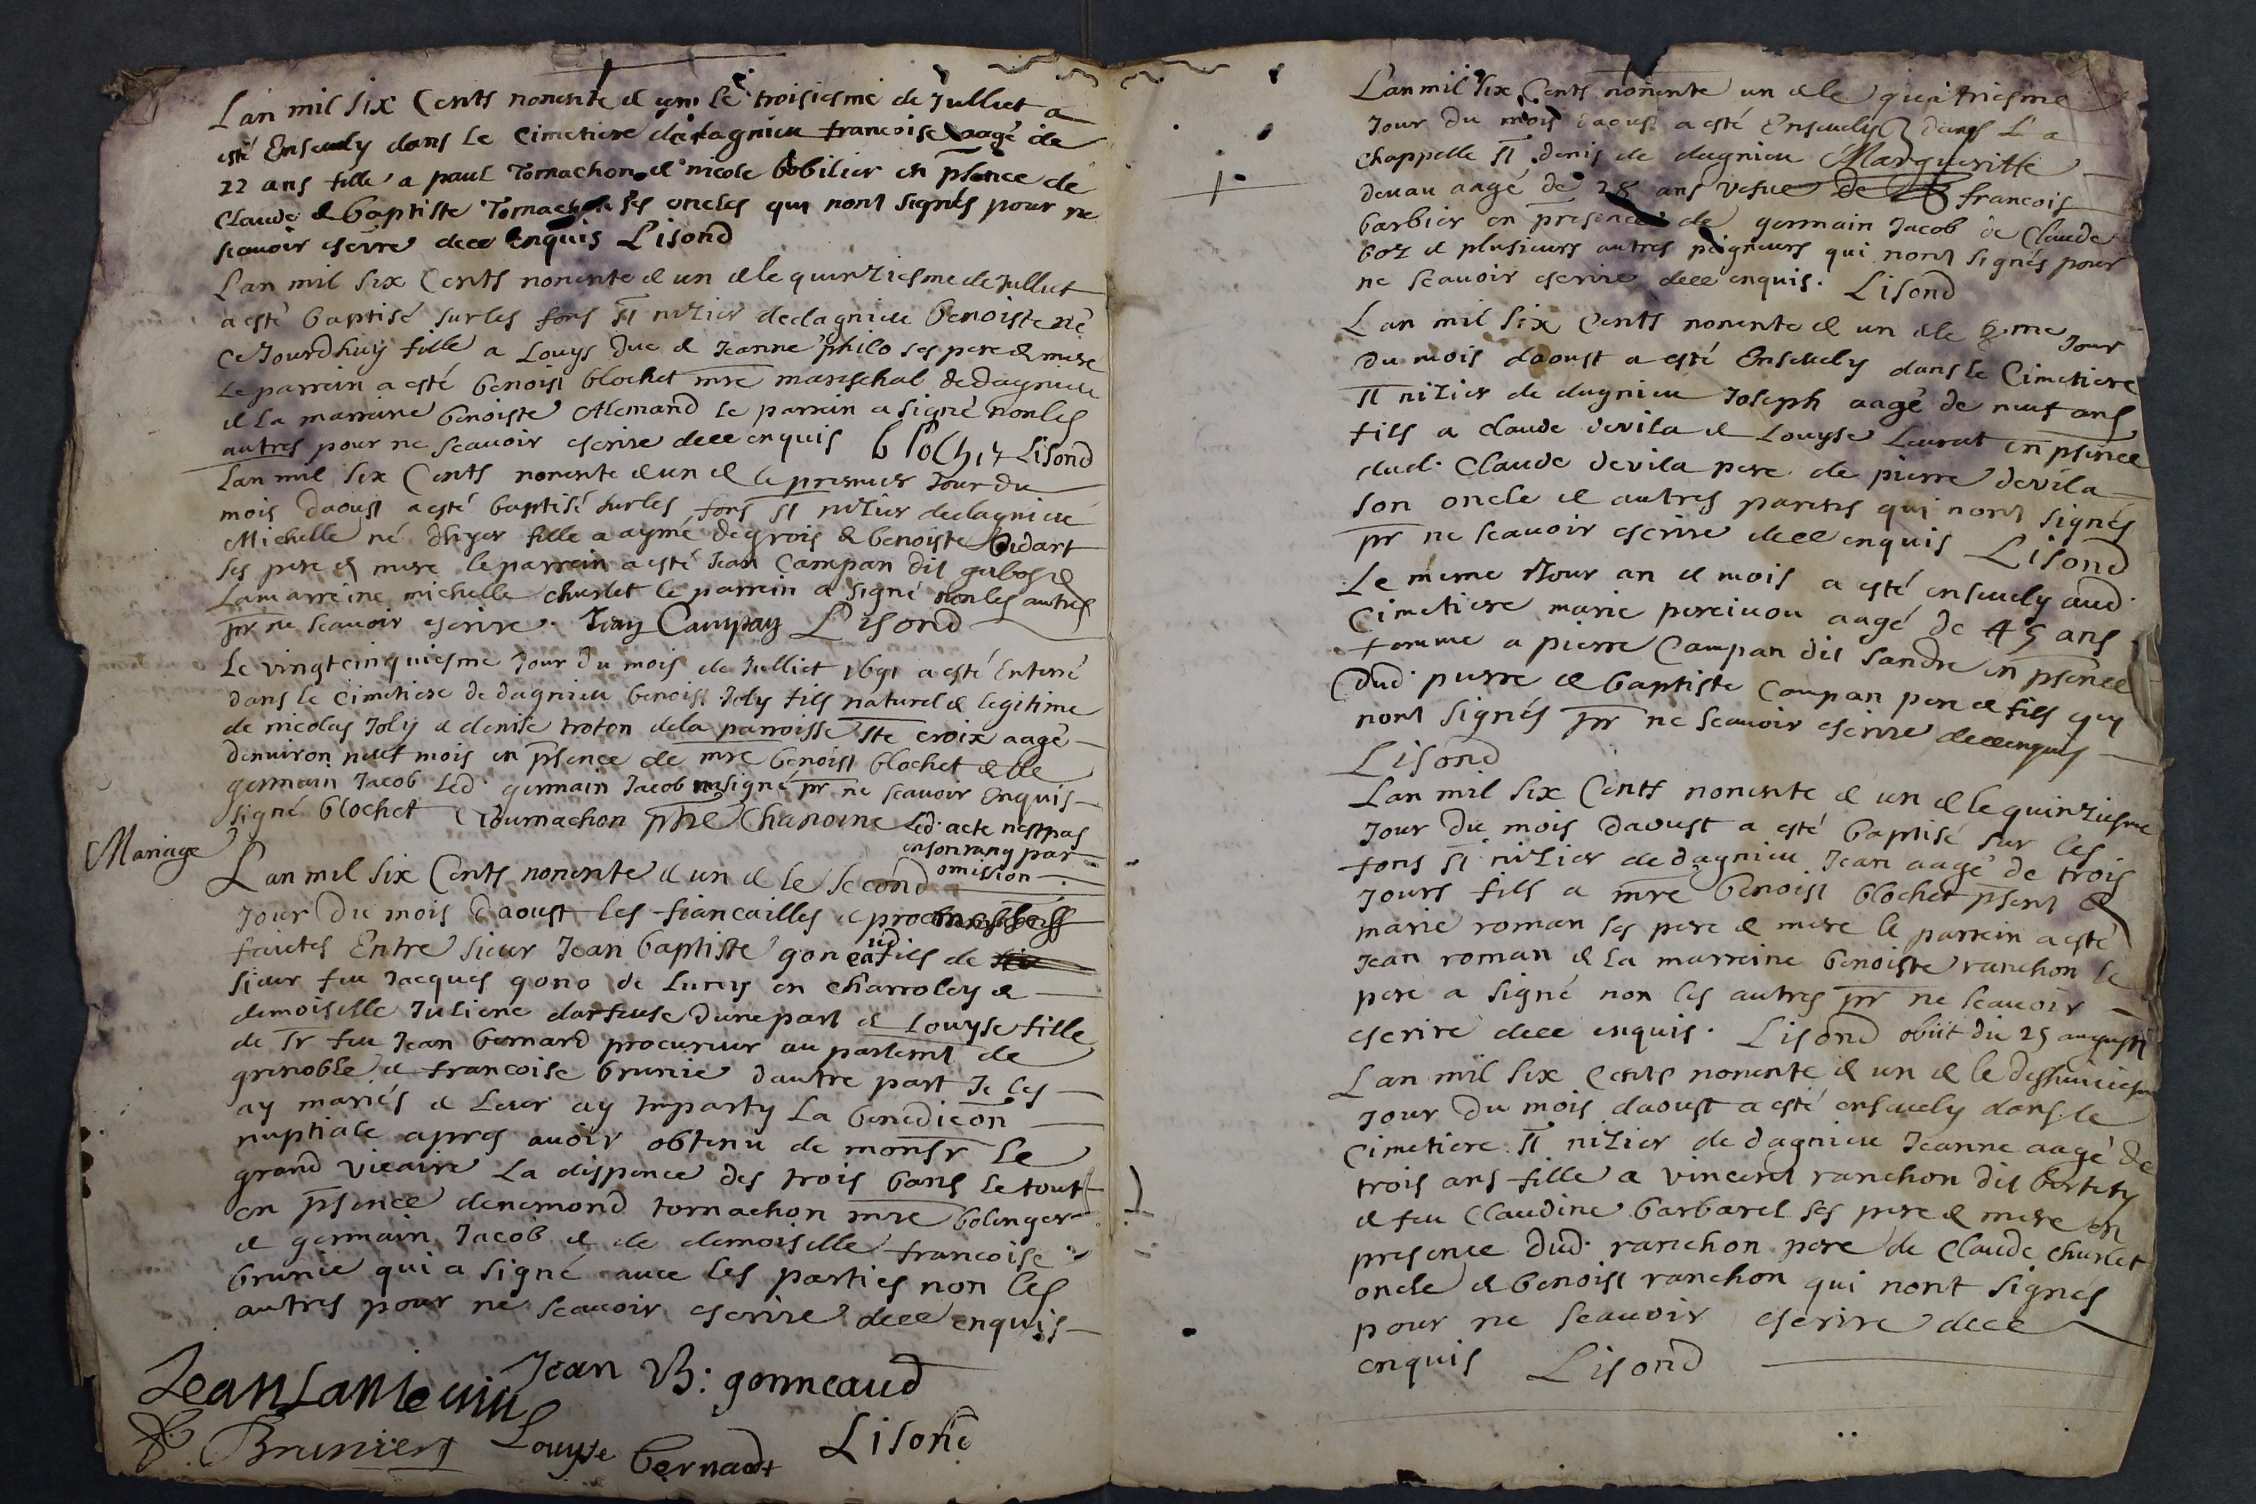 Lan mil six Cents nonente et un le troisiesme de Julliet a
esté Ensevely dans le cimetiere de dagnieu francoise aagé de
22 ans fille a paul Tornachon et nicole bobilier en psence de
Claude et baptiste Tornachon ses oncles qui nont signés pour ne
scauoir escrire dece Enquis Lisond
Lan mil six Cents nonente et un et le quinziesme de Julliet
a esté baptisé sur les fons st nizier de dagnieu benoiste né
Ce Jourdhuy fille a Louys duc et Jeanne philo ses pere et mere
Le parrein a esté benoist blochet mre mareschal de dagnieu
et la marreine benoiste Alemand le parrein a signé non les
autres pour ne scauoir escrire dece enquis blochet Lisond
Lan mil six Cents nonente et un et le premier Jour du
mois daoust a esté baptisé sur les fons st nizier de dagnieu
Michelle né dhyer fille a aymé degrois et benoiste bidart
ses pere et mere le parrein a esté Jean Campan dit gabos et
La marreine michelle churlet le parrein a signé non les autres
pr ne scauoir escrire. Jean Campan Lisond
Le vingtcinquiesme Jour du mois de Julliet 1691 a esté Enterré
dans le cimetiere de dagnieu benoist Joly fils naturel et legitime
de nicolas Joly et denise troton de la parroisse ste croix aagé
denuiron neuf mois en psence de mre benoist blochet et de
germain Jacob Led. germain Jacob na signé pr ne scauoir Enquis
signé blochet Tournachon pbre Chanoine Led. acte nest pas
en son rang par
omission
Mariage
Lan mil six Cents nonente et un et le second
Jour du mois daoust les fiancailles et
faictes Entre sieur Jean baptiste goneaud fils de
sieur feu Jacques gono de Lurcy en charroley et
demoiselle Juliene darfeuse dune part et Louyse fille
de sr feu Jean bernard procureur au parlemt de
grenoble et francoise brunie dautre part Je les
ay mariés et Leur ay Imparty la benediCon
nuptiale apres auoir obtenu de monsr le
grand vicaire La dispence des trois bans le tout
en psence denemond tornachon mre bolenger
et germain Jacob et de demoiselle francoise
brunie qui a signé auec les parties non les
autres pour ne scauoir escrire dece enquis
Jean Jean B: gonneaud
F. Brunier Louyse bernard Lisond
Lan mil six Cents nonente un et le quatriesme
Jour du mois daoust a esté Enseuely dans La
chappelle st denis de dagnieu Margueritte
deuau aagé de 28 ans vefue de francois
barbier en presence de germain Jacob de Claude
boz et plusieurs autres peigneurs qui nont signés pour
ne scauoir escrire dece enquis. Lisond
Lan mil six Cents nonente et un et le 6me Jour
du mois daoust a esté Enseuely dans le Cimetiere
st nizier de dagnieu Joseph aagé de neuf ans
fils a claude devila et Louyse Leurat en psence
dud. Claude devila pere de pierre devila
son oncle et autres parens qui nont signés
pr ne scauoir escrire dece enquis Lisond
Le meme Jour an et mois a esté enseuely aud.
Cimetiere marie perciuou aagé de 45 ans
femme a pierre Campan dit sandre en psence
dud. pierre et baptiste Campan pere et fils qui
nont signés pr ne scauoir escrire dece enquis
Lisond
Lan mil six Cents nonente et un et le quinziesme
Jour du mois daoust a esté baptisé sur les
fons st nizier de dagnieu Jean aagé de trois
Jours fils a mre benoist blochet psent et
marie roman ses pere et mere le parrein a esté
Jean roman et la marreine benoiste ranchon le
pere a signé non les autres pr ne scauoir
escrire dece enquis. Lisond obiit die 25 augusti
Lan mil six Cents nonente et un et le
Jour du mois daoust a esté enseuely dans le
cimetiere st nizier de dagnieu Jeanne aagé de
trois ans fille a vincent ranchon dit
et feu Claudine barbarel ses pere et mere en
presence dud. ranchon pere de Claude churlet
oncle et benoist ranchon qui nont signés
pour ne scauoir escrire dece
enquis Lisond